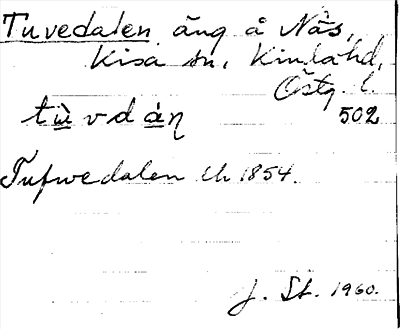 Tuvedalen äng å Näs,
Kisa sn, Kinda hd,
Östg. l.
tu̠vdaṇ 502
Tufwedalen Lh 1854.
J. St. 1960.